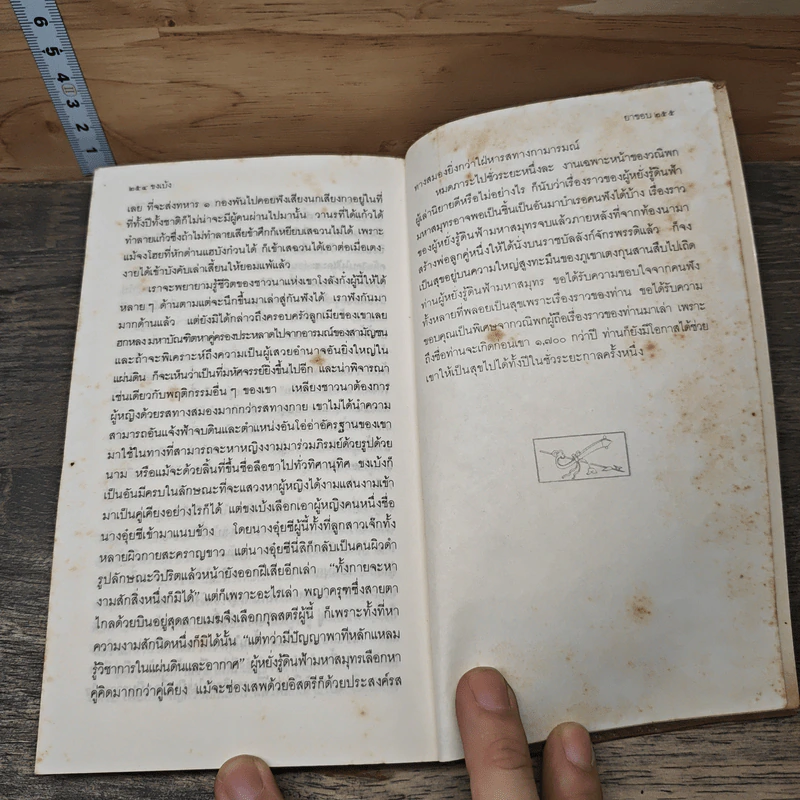 6
5
4
3
2
1
๒๕๔ ขงเบ้ง
เลย ที่จะส่งทหาร ๑ กองพันไปคอยฟังเสียงนกเสียงกาอยู่ในที่
ที่ทั้งปีทั้งชาติก็ไม่น่าจะมีผู้คนผ่านไปมานั้น วานรที่ได้แก้วได้
ทำลายแก้วซึ่งถ้าไม่ทำลายเสียข้าศึกก็เหยียบเสฉวนไม่ได้ เพราะ
แม้จงโฮยที่หักด่านแฮบังก๋วนได้ ก็เข้าเสฉวนได้เอาต่อเมื่อเตง-
งายได้เข้าบังคับเล่าเสี้ยนให้ยอมแพ้แล้ว
เราจะพยายามรู้ชีวิตของชาวนาแห่งเขาโงลังกั๋งผู้นี้ให้ได้
หลาย ๆ ด้านตามแต่จะนึกขึ้นมาเล่าสู่กันฟังได้ เราฟังกันมา
มากด้านแล้ว แต่ยังมิได้กล่าวถึงครอบครัวลูกเมียของเขาเลย
ฮกหลง มหาบัณฑิตหาคู่ครองประหลาดไปจากอารมณ์ของสามัญชน
และถ้าจะพิเคราะห์ถึงความเป็นผู้เสวยอำนาจอันยิ่งใหญ่ใน
แผ่นดิน ก็จะเห็นว่าเป็นที่มหัศจรรย์ยิ่งขึ้นไปอีก และน่าพิจารณา
เช่นเดียวกับพฤติกรรมอื่น ๆ ของเขา เหลียงชาวนาต้องการ
ผู้หญิงด้วยรสทางสมองมากกว่ารสทางกาย เขาไม่ได้นำความ
สามารถอันแจ้งฟ้าจบดินและตำแหน่งอันโอ่อ่าอัครฐานของเขา
มาใช้ในทางที่สามารถจะหาหญิงงามมาร่วมภิรมย์ด้วยรูปด้วย
นาม หรือแม้จะด้วยลิ้นที่ขึ้นชื่อลือชาไปทั่วทิศานุทิศ ขงเบ้งก็
เป็นอันมีครบในลักษณะที่จะแสวงหาผู้หญิงได้งามแสนงามเข้า
มาเป็นคู่เคียงอย่างไรก็ได้ แต่ขงเบ้งเลือกเอาผู้หญิงคนหนึ่งชื่อ
นางอุ๋ยซีเข้ามาแนบข้าง โดยนางอุ๋ยซีผู้นี้ทั้งที่ลูกสาวเจ๊กทั้ง
หลายผิวกายสะคราญขาว แต่นางอุ๋ยซีนี่สิก็กลับเป็นคนผิวดำ
รูปลักษณะวิปริตแล้วหน้ายังออกฝีเสียอีกเล่า “ทั้งกายจะหา
งามสักสิ่งหนึ่งก็มิได้” แต่ก็เพราะอะไรเล่า พญาครุฑซึ่งสายตา
ไกลด้วยบินอยู่สุดสายเมฆจึงเลือกกุลสตรีผู้นี้ ก็เพราะทั้งที่หา
ความงามสักนิดหนึ่งก็มิได้นั้น “แต่ทว่ามีปัญญาพาทีหลักแหลม
รู้วิชาการในแผ่นดินและอากาศ” ผู้หยั่งรู้ดินฟ้ามหาสมุทรเลือกหา
คู่คิดมากกว่าคู่เคียง แม้จะซ่องเสพด้วยอิสตรีก็ด้วยประสงค์รส
ยาขอบ ๒๕๕
ทางสมองยิ่งกว่าใฝ่หารสทางกามารมณ์
หมดภาระไปชั่วระยะหนึ่งละ งานเฉพาะหน้าของวณิพก
ผู้เล่านิยายดีหรือไม่อย่างไร ก็นับว่าเรื่องราวของผู้หยั่งรู้ดินฟ้า
มหาสมุทรอาจพอเป็นชิ้นเป็นอันมาบำเรอคนฟังได้บ้าง เรื่องราว
ของผู้หยั่งรู้ดินฟ้ามหาสมุทรจบแล้วภายหลังที่จากท้องนามา
สร้างพ่อลูกคู่หนึ่งให้ได้นั่งบนราชบัลลังก์จักรพรรดิแล้ว ก็จง
เป็นสุขอยู่บนความใหญ่สูงทะมึนของภูเขาเตงกุนสานสืบไปเถิด
ท่านผู้หยั่งรู้ดินฟ้ามหาสมุทร ขอได้รับความขอบใจจากคนฟัง
ทั้งหลายที่พลอยเป็นสุขเพราะเรื่องราวของท่าน ขอได้รับความ
ขอบคุณเป็นพิเศษจากวณิพกผู้ถือเรื่องราวของท่านมาเล่า เพราะ
ถึงซื่อท่านจะเกิดก่อนเขา ๑,๗๐๐ กว่าปี ท่านก็ยังมีโอกาสได้ช่วย
เขาให้เป็นสุขไปได้ทั้งปีในชั่วระยะกาลครั้งหนึ่ง